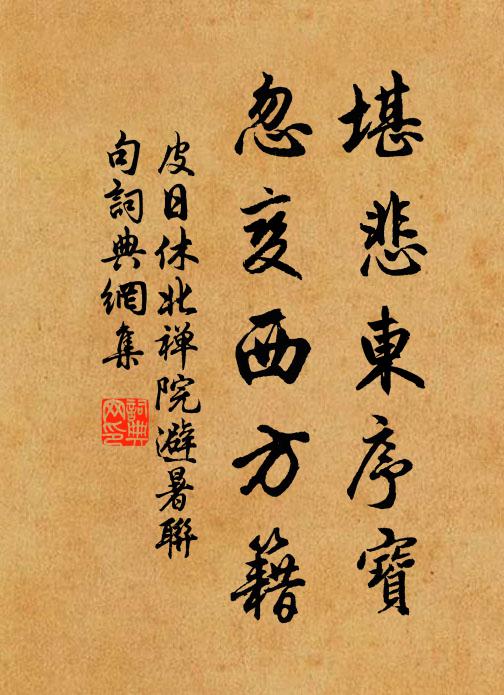 堪悲東序寶
忽变西方籍
皮日休北禅院避暑聯
句詞典網集
詞典网印